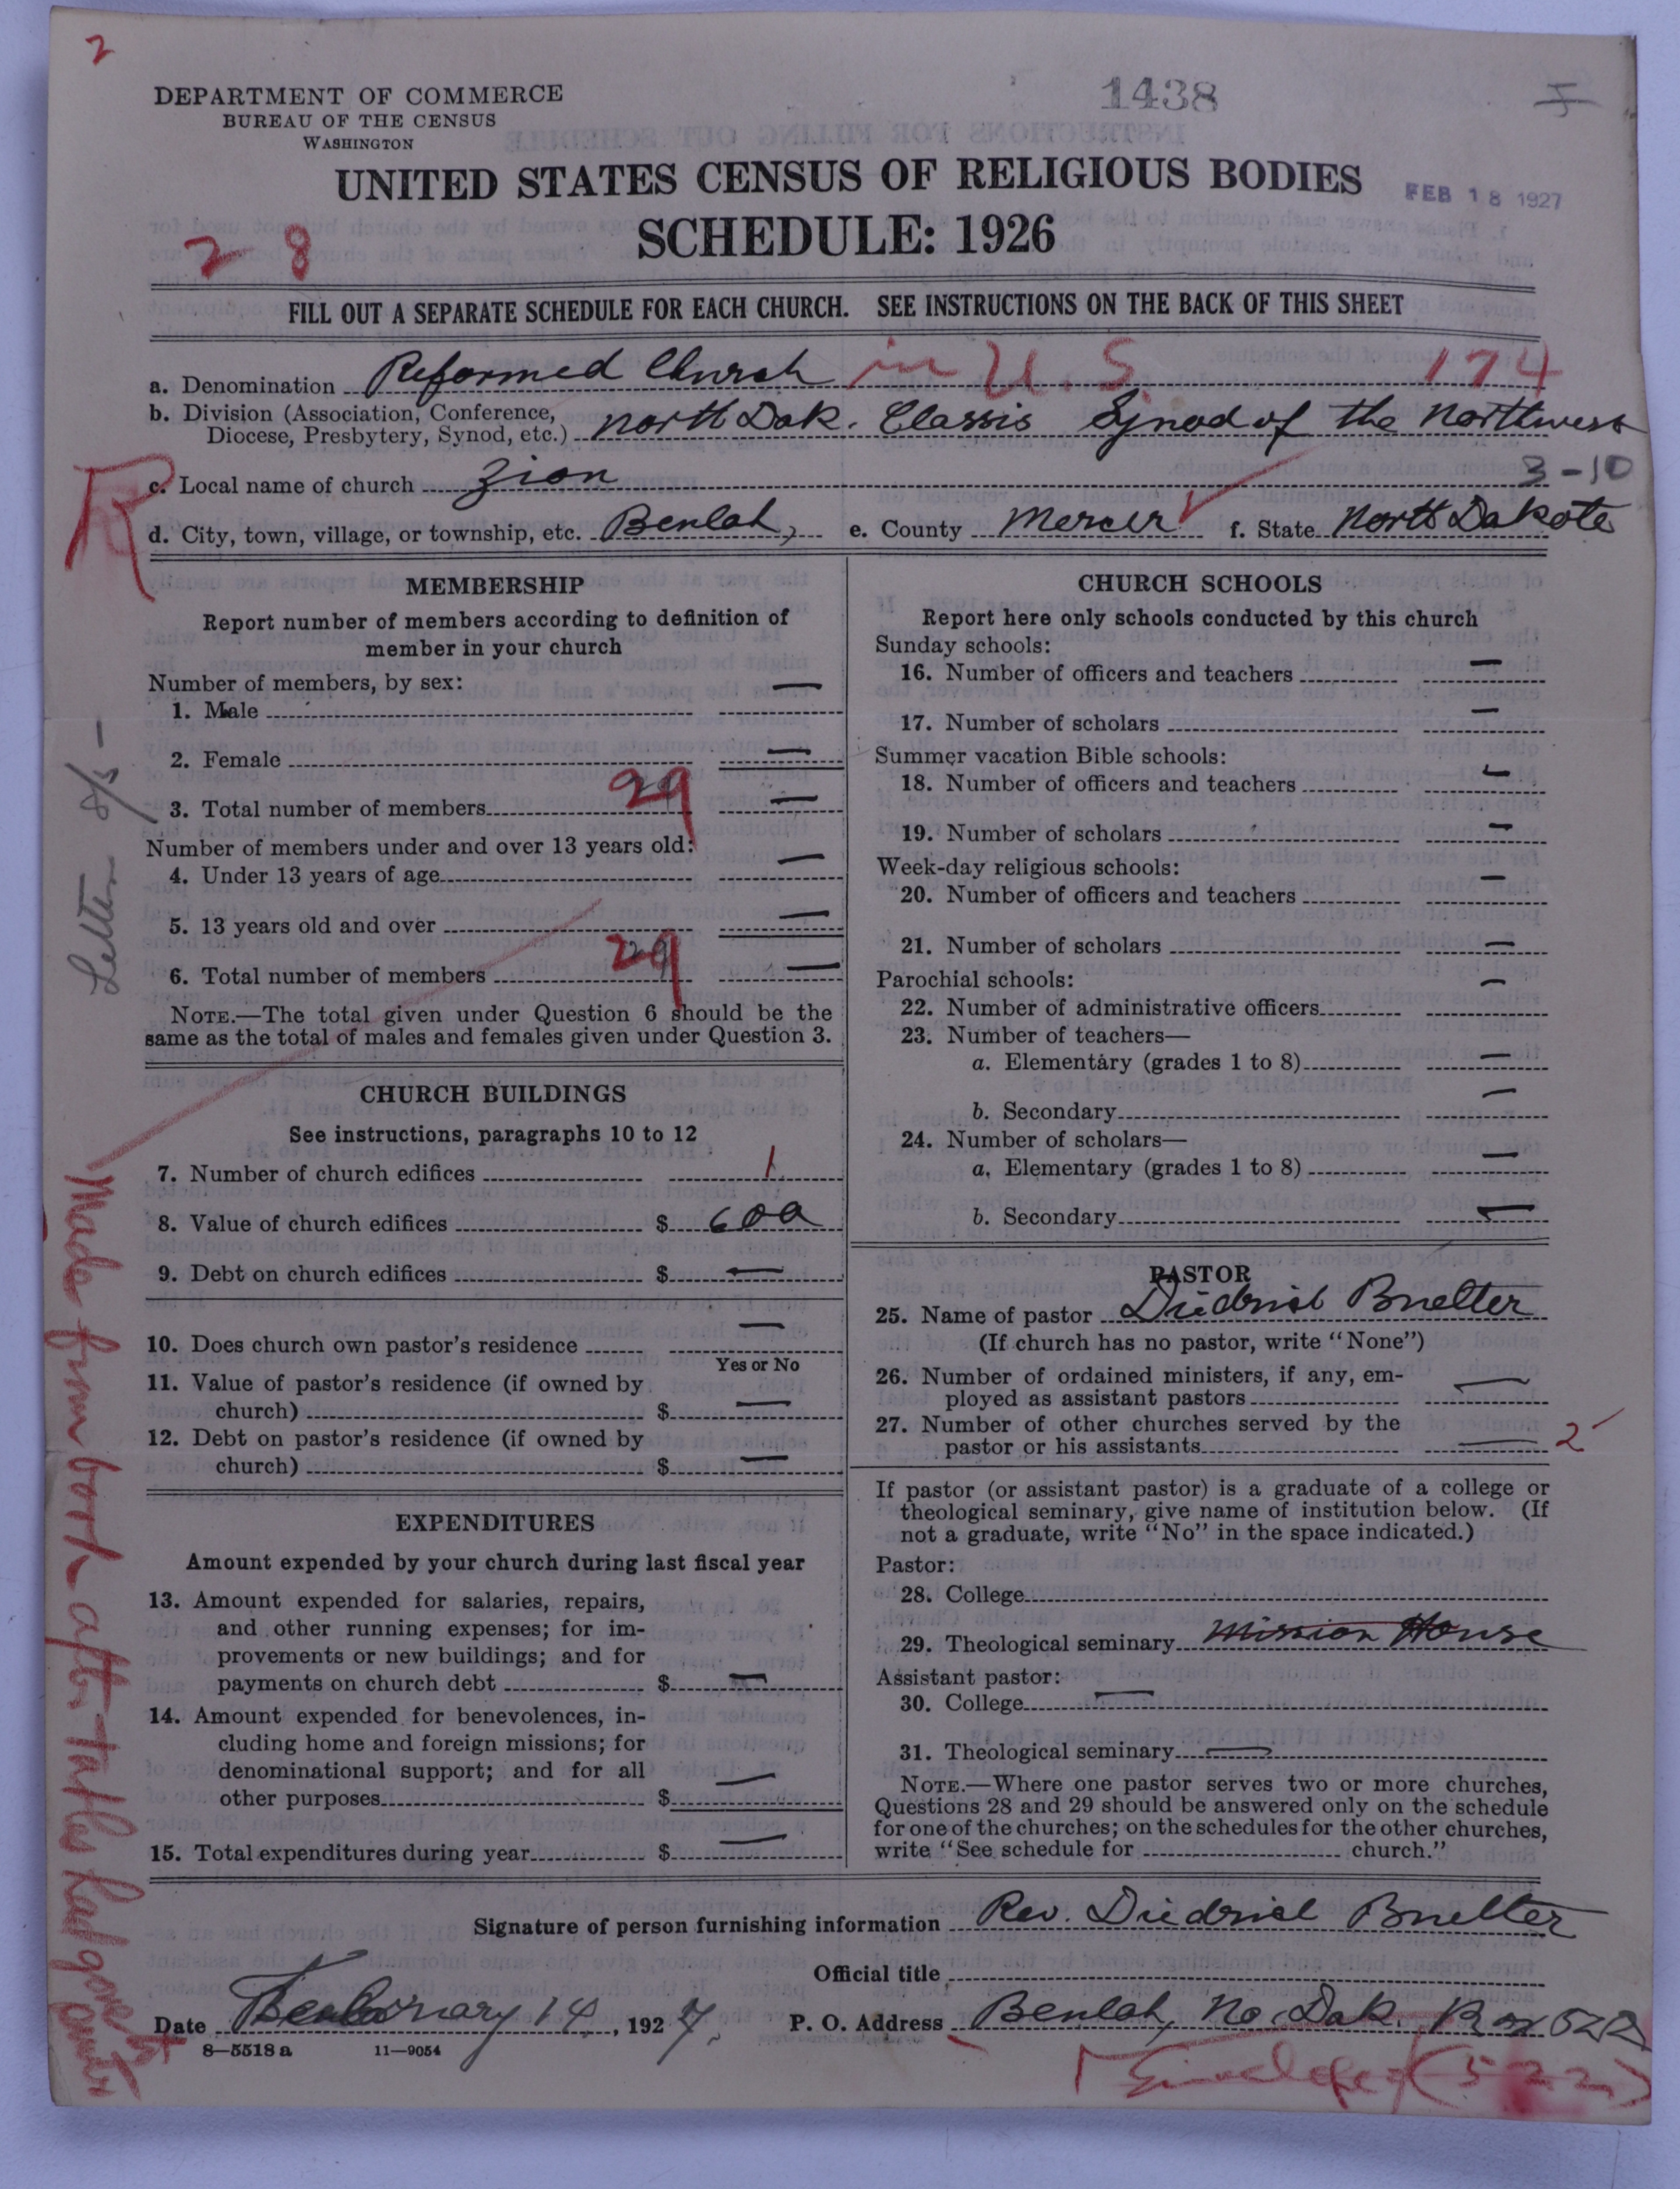 2
DEPARTMENT OF COMMERCE
BUREAU OF THE CENSUS
WASHINGTON
1438
UNITED STATES CENSUS OF RELIGIOUS BODIES
FEB 18 1927
SCHEDULE: 1926
2-8
FILL OUT A SEPARATE SCHEDULE FOR EACH CHURCH. SEE INSTRUCTIONS ON THE BACK OF THIS SHEET
a. Denomination Reformed Church in U. S. 174
b. Division (Association, Conference,
Diocese, Presbytery, Synod, etc.) North Dak. Classis Synod of the Northwest
3-10
R
c. Local name of church Zion
d. City, town, village, or township, etc. Beulah, e. County Mercer f. State North Dakota
MEMBERSHIP
Report number of members according to definition of
member in your church
Number of members, by sex:
1. Male —
2. Female —
3. Total number of members 29 —
Number of members under and over 13 years old:
4. Under 13 years of age —
5. 13 years old and over —
6. Total number of members 29 —
NOTE.—The total given under Question 6 should be the
same as the total of males and females given under Question 3.
Letter 8/5 -
CHURCH BUILDINGS
See instructions, paragraphs 10 to 12
7. Number of church edifices 1
8. Value of church edifices $ 600
9. Debt on church edifices $ —
10. Does church own pastor's residence —
Yes or No
11. Value of pastor's residence (if owned by
church) $ —
12. Debt on pastor's residence (if owned by
church) $ —
EXPENDITURES
Amount expended by your church during last fiscal year
13. Amount expended for salaries, repairs,
and other running expenses; for im-
provements or new buildings; and for
payments on church debt $ —
14. Amount expended for benevolences, in-
cluding home and foreign missions; for
denominational support; and for all
other purposes $ —
15. Total expenditures during year $ —
Made from book after tables had gone to
CHURCH SCHOOLS
Report here only schools conducted by this church
Sunday schools:
16. Number of officers and teachers —
17. Number of scholars —
Summer vacation Bible schools:
18. Number of officers and teachers —
19. Number of scholars —
Week-day religious schools:
20. Number of officers and teachers —
21. Number of scholars —
Parochial schools:
22. Number of administrative officers —
23. Number of teachers—
a. Elementary (grades 1 to 8) —
b. Secondary —
24. Number of scholars—
a. Elementary (grades 1 to 8) —
b. Secondary —
PASTOR
25. Name of pastor Diedrich Buelter
(If church has no pastor, write "None")
26. Number of ordained ministers, if any, em-
ployed as assistant pastors —
27. Number of other churches served by the
pastor or his assistants — 2
If pastor (or assistant pastor) is a graduate of a college or
theological seminary, give name of institution below. (If
not a graduate, write "No" in the space indicated.)
Pastor:
28. College
29. Theological seminary Mission House
Assistant pastor:
30. College —
31. Theological seminary —
NOTE.—Where one pastor serves two or more churches,
Questions 28 and 29 should be answered only on the schedule
for one of the churches; on the schedules for the other churches,
write "See schedule for church."
Signature of person furnishing information Rev. Diedrich Buelter
Official title
Date February 14, 1927. P. O. Address Beulah, No. Dak. Box 522
8—5518 a 11—9054
(522)